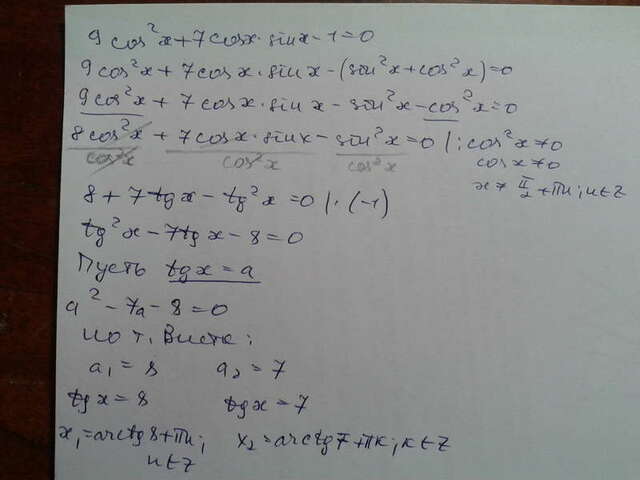 9cos²x+7cosx·sinx-1=0
9cos²x+7cosx·sinx-(sin²x+cos²x)=0
9cos²x+7cosx·sinx-sin²x-cos²x=0
8cos²x+7cosx·sinx-sin²x=0 |:cos²x≠0
cos²x cos²x cos²x cosx≠0
x≠π/2+πn; n∈Z
8+7tgx-tg²x=0 |·(-1)
tg²x-7tgx-8=0
Пусть tgx=a
a²-7a-8=0
по т. Виета:
a₁=8 a₂=7
tgx=8 tgx=7
x₁=arctg8+πn; x₂=arctg7+πk, k∈Z
n∈Z